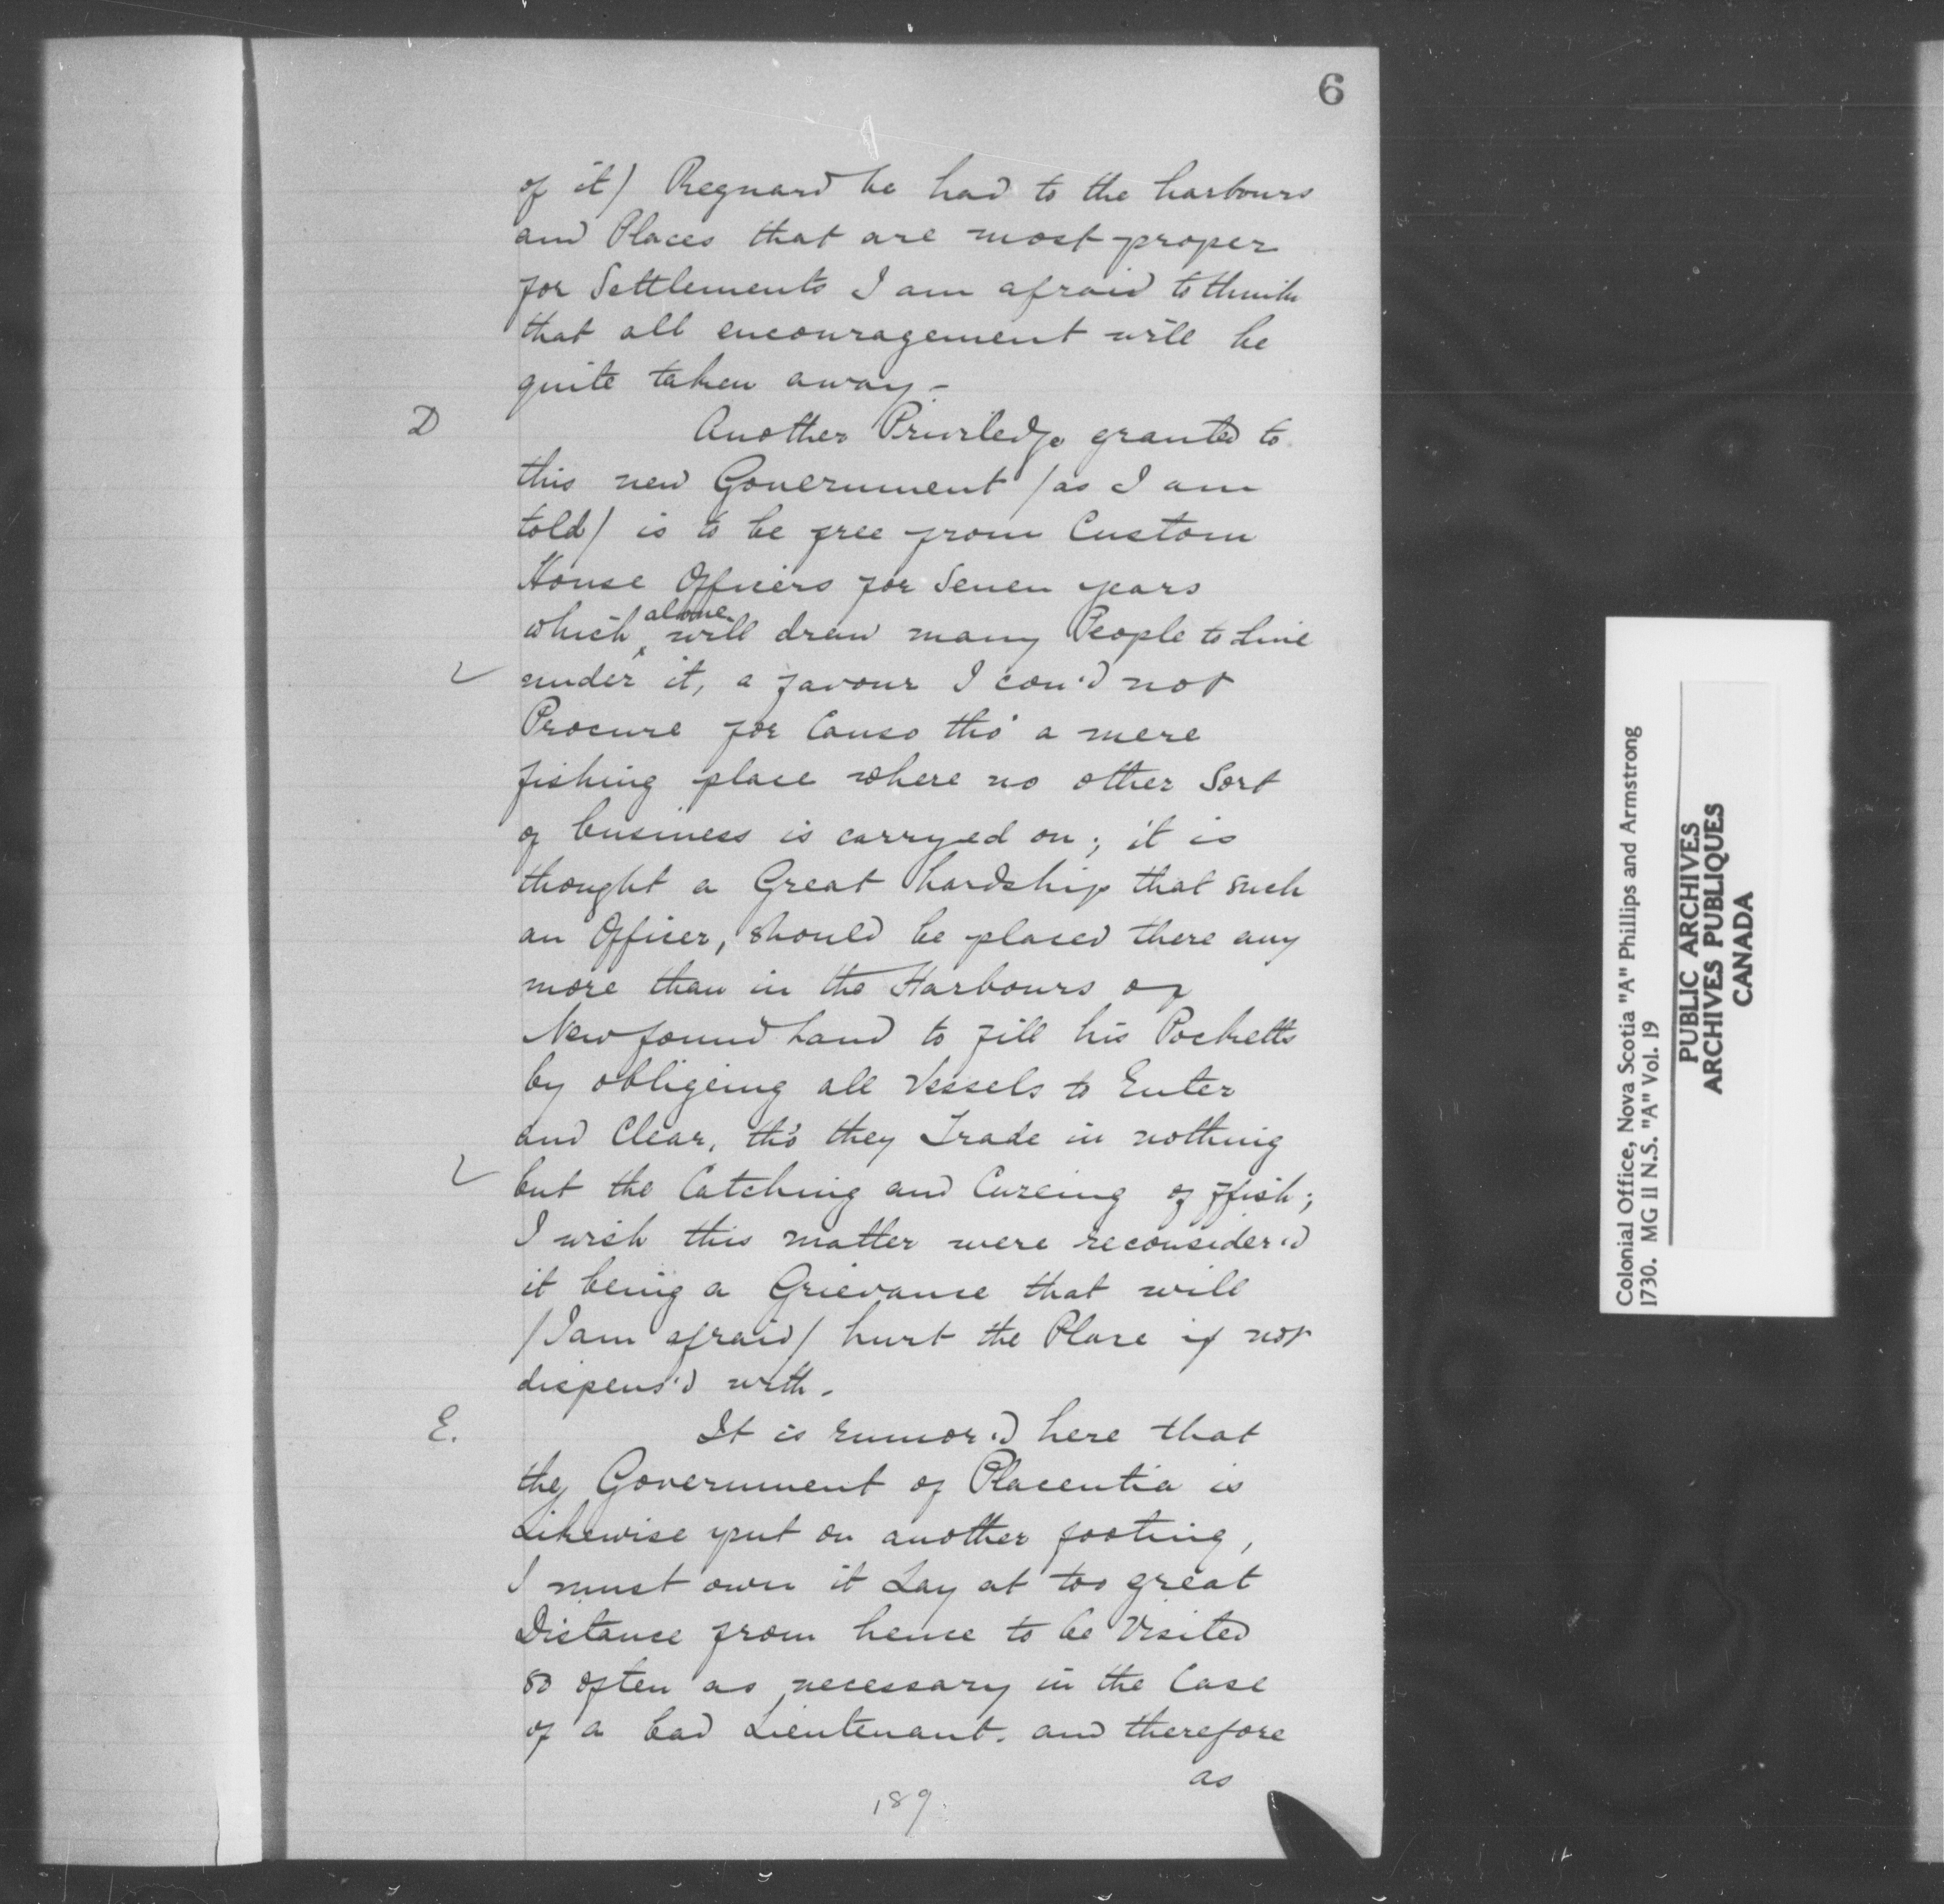 6
of it) Reguard be had to the harbours
and Places that are most proper
for Settlements I am afraid to think
that all encouragement will be
quite taken away -
D
Another Priviledge granted to
this new Government /as I am
told/ is to be free from Custom
House Officers for Seven years
which alone will draw many People to Live
under it, a favour I cou'd not
Procure for Canso tho' a mere
fishing place where no other Sort
of business is carryed on; it is
thought a Great hardship that such
an Officer, should be placed there any
more than in the Harbours of
Newfound Land to fill his Pocketts
by obligeing all Vessels to Enter
and Clear, tho' they Trade in nothing
but the Catching and Cureing of ffish;
I wish this matter were reconsider'd
it being a Grievance that will
/I am afraid/ hurt the Place if not
dispens'd with.
E.
It is rumor'd here that
the Government of Placentia is
Likewise put on another footing,
I must own it Lay at too great
Distance from hence to be Visited
so often as necessary in the Case
of a bad Lieutenant. and therefore
as
189
Colonial Office, Nova Scotia "A" Phillips and Armstrong
1730. MG 11 N.S. "A" Vol. 19
PUBLIC ARCHIVES
ARCHIVES PUBLIQUES
CANADA